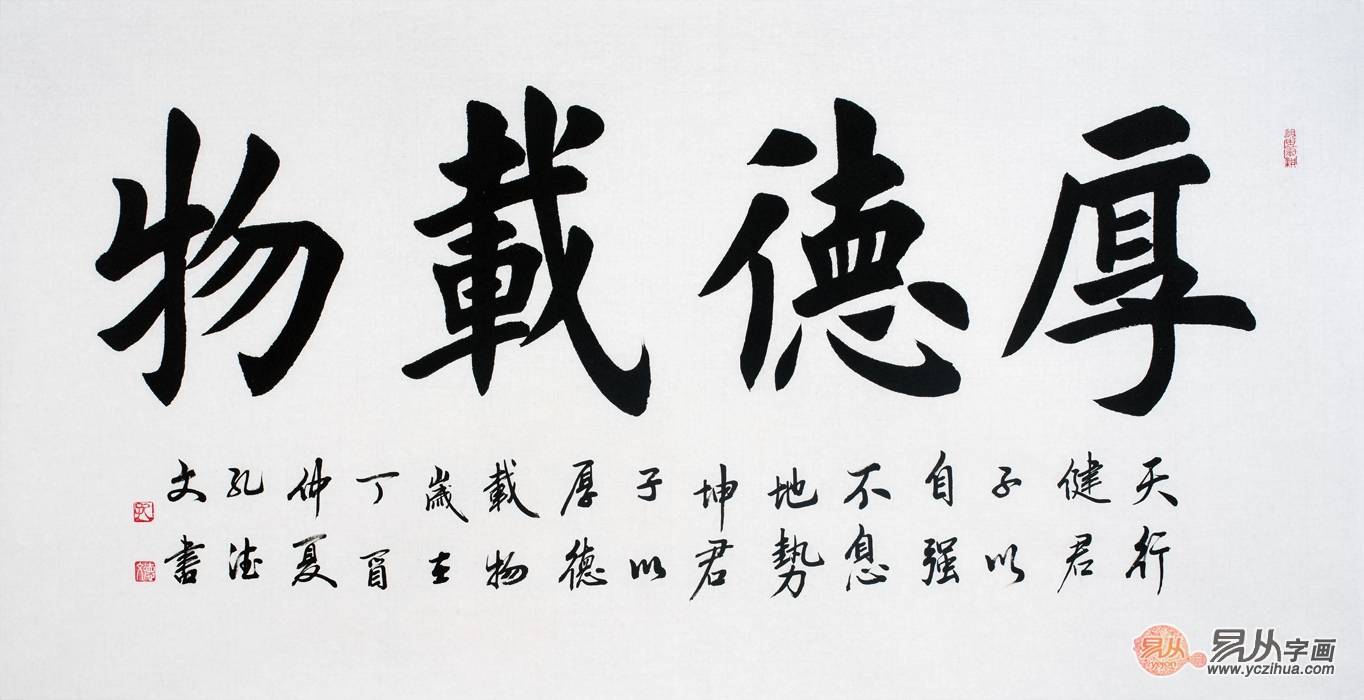 厚德載物
天行
健君
子以
自强
不息
地勢
坤君
子以
厚德
載物
歲在
丁酉
仲夏
孔德
文書
易从字画
www.yczihua.com